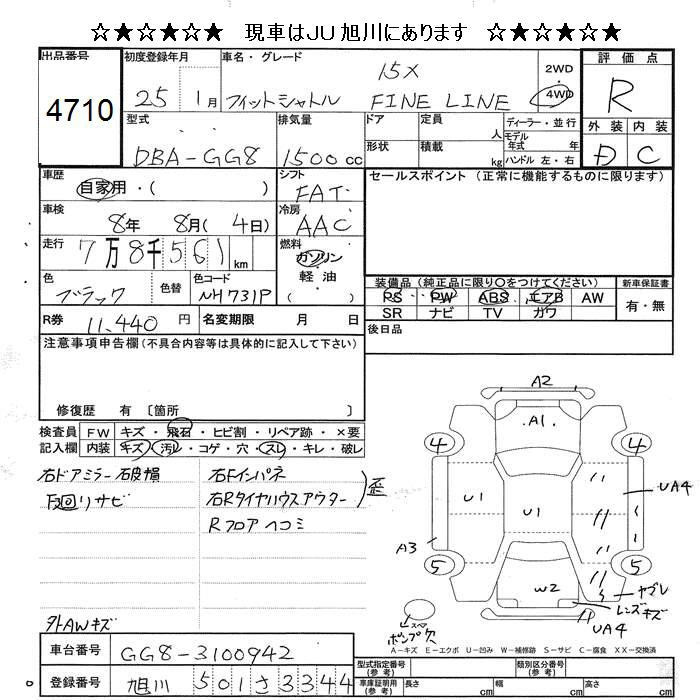 ☆★☆★☆★ 現車はJU旭川にあります ☆★☆★☆★
出品番号 初度登録年月 車名・グレード 評価点
4710 25 1月 フィットシャトル 15X FINE LINE 2WD 4WD R
型式 排気量 ドア 定員 人 ディーラー・並行 外装 内装
DBA-GG8 1500cc 形状 積載 kg モデル年式 年 ハンドル 左・右 D C
車歴 シフト セールスポイント(正常に機能するものに限ります)
自家用・( ) FAT
車検 冷房
8年 8月(4日) AAC
走行 燃料
7万8千561km ガソリン
軽油
色 色替 色コード ( )
ブラック NH731P
装備品(純正品に限り○をつけてください) 新車保証書
PS PW ABS エアB AW 有・無
SR ナビ TV ガワ
R券 11,440円 名変期限 月 日
後日品
注意事項申告欄(不具合内容等は具体的に記入して下さい)
修復歴 有 〔箇所 〕
検査員 FW キズ・飛石・ヒビ割・リペア跡・×要
記入欄 内装 キズ・汚レ・コゲ・穴・スレ・キレ・破レ
右ドアミラー破損
下回リサビ
右Fインパネ
右Rタイヤハウスアウター
歪
Rフロアヘコミ
外AWキズ
A2
A1
4 4
U1 U1 UA4
A3
5 5
W2
ヤブレ
レンズキズ
UA4
スペア
ポンプ穴
A-キズ E-エクボ U-凹み W-補修跡 S-サビ C-腐食 XX-交換済
車台番号 GG8-3100942
登録番号 旭川 501 さ 3344
型式指定番号(参考) 類別区分番号(参考)
車庫証明用(参考) 長さ cm 幅 cm 高さ cm